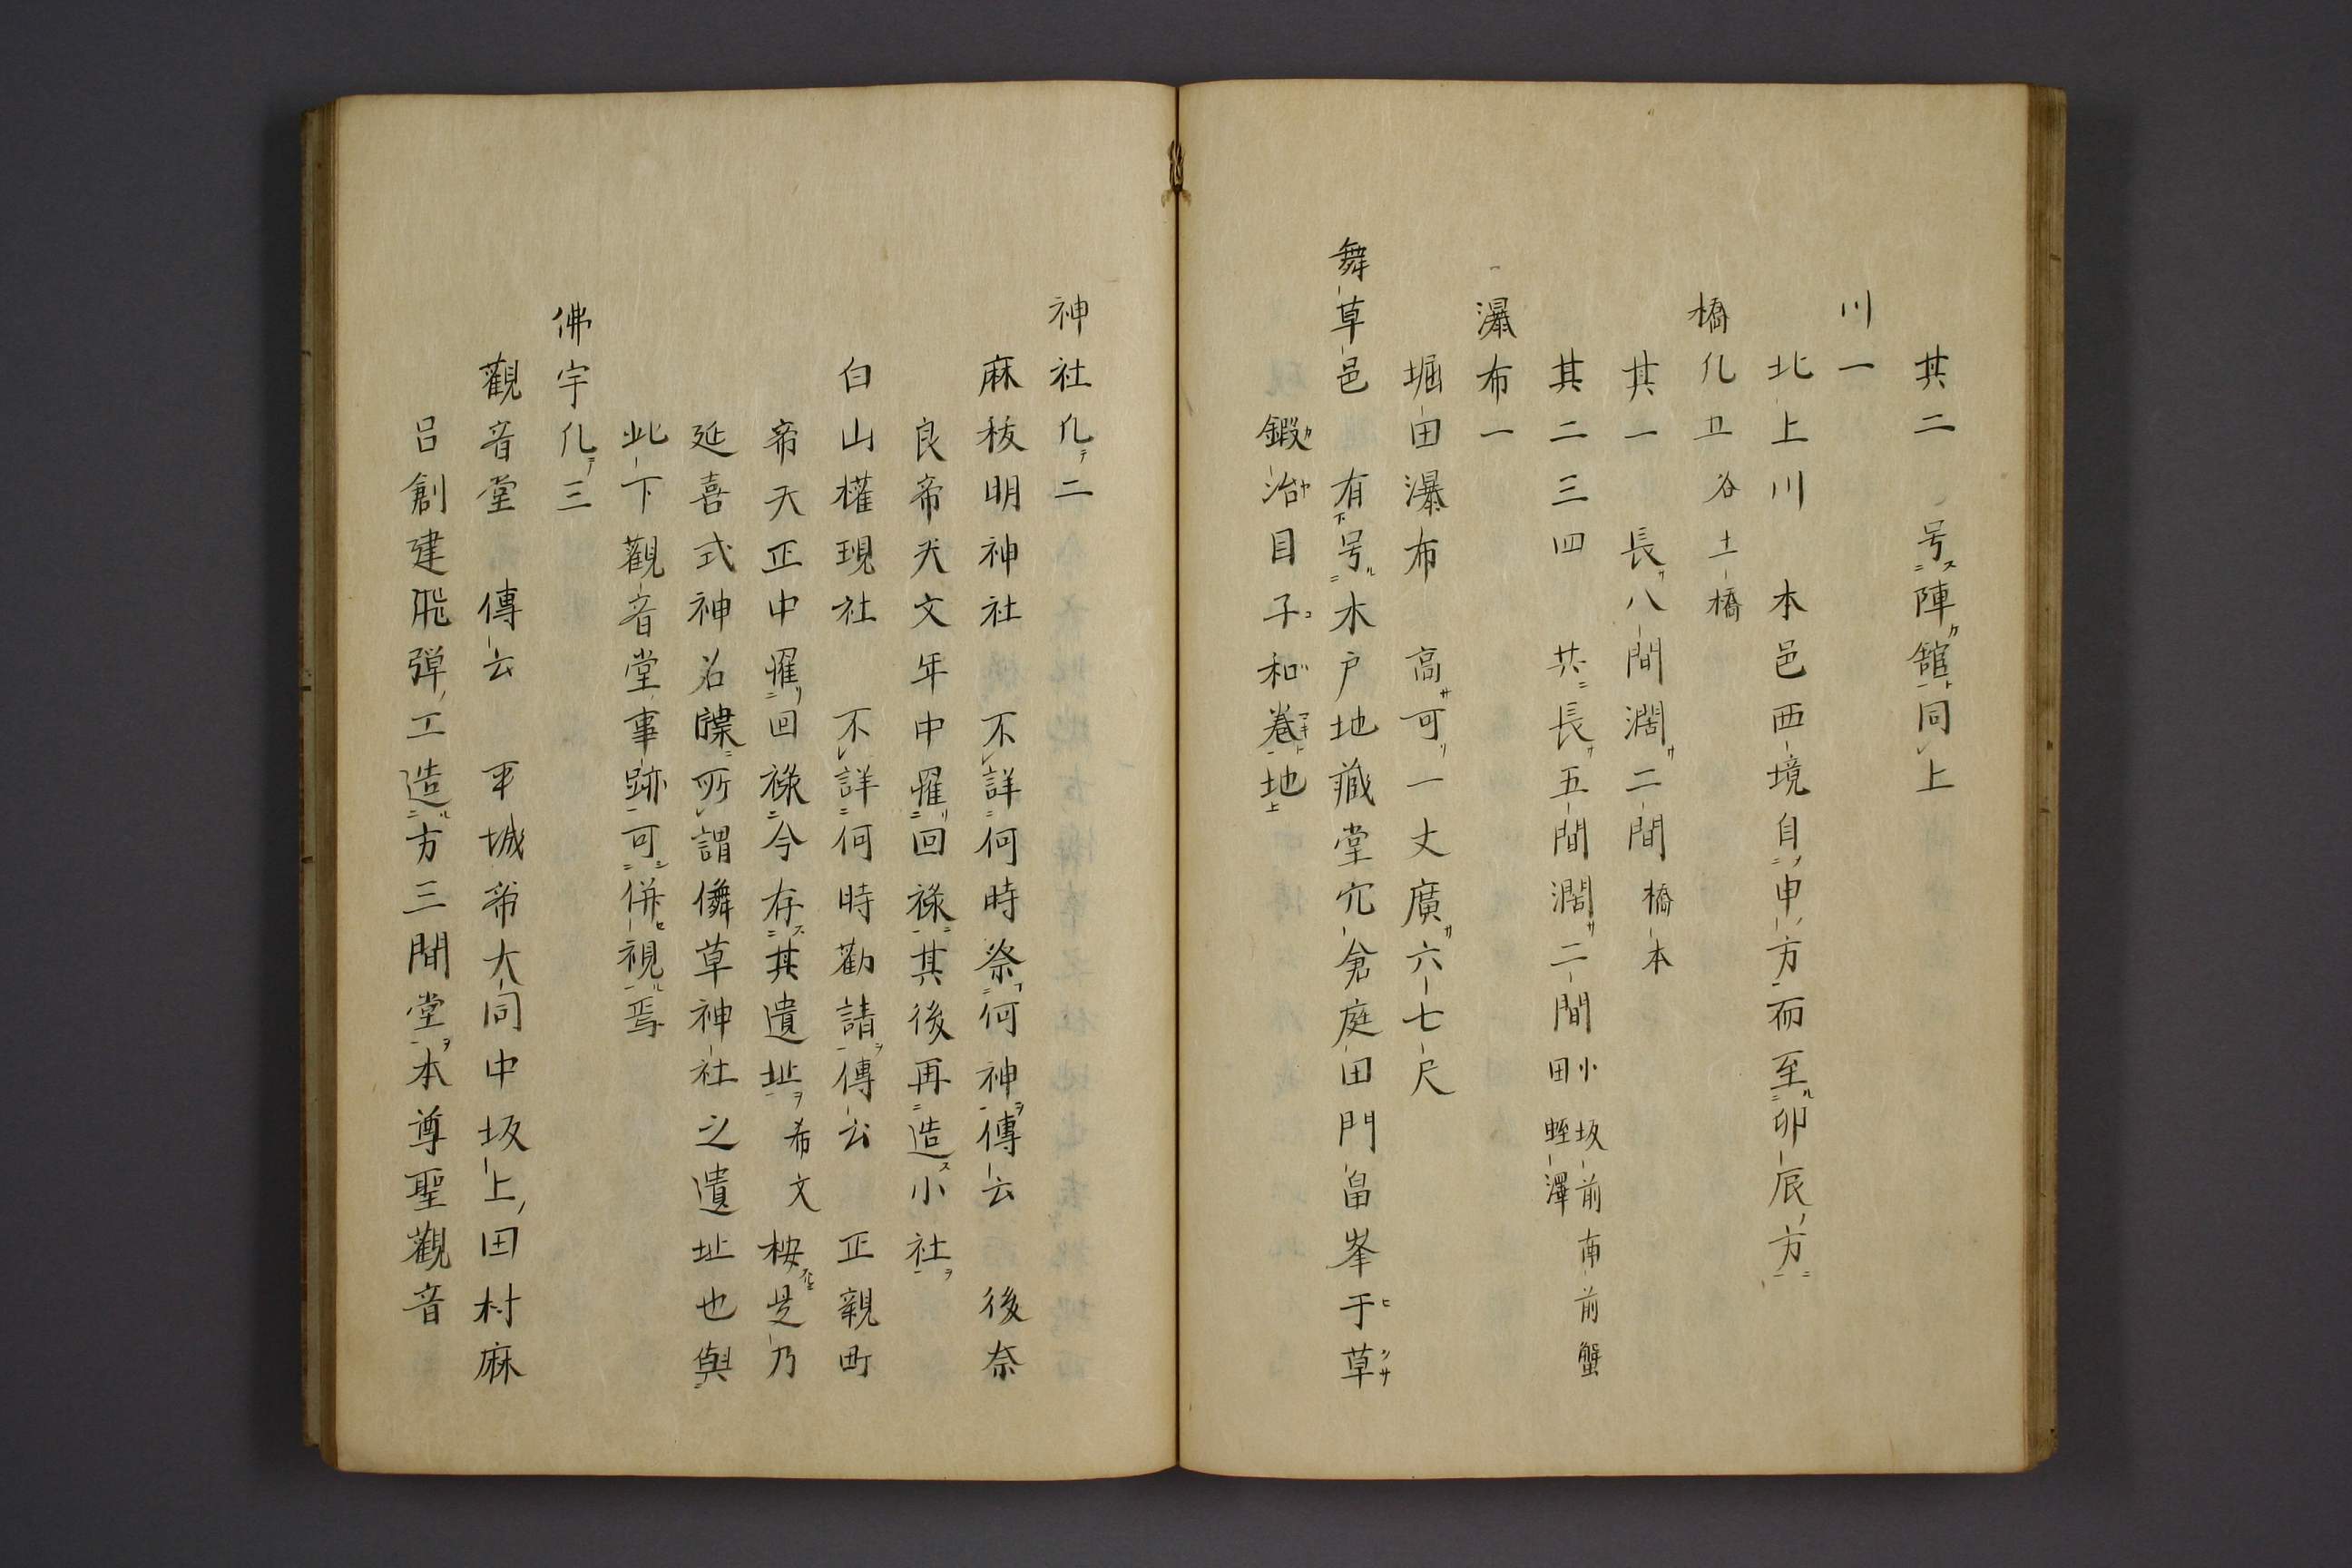 其二　号陣舘同上
川一
北上川　本邑西境自申方而至卯辰方
橋凡四 谷土橋
其一　長八間濶二間 橋本
其二三四　共長五間濶二間 小坂前南前蟹田蛭澤
瀑布一
堀田瀑布　高可一丈廣六七尺
舞草邑　有号水戸地藏堂穴倉庭田門畠峯于草
鍜治目子和巻地
神社凡二
麻秡明神社　不詳何時祭何神傳云　後奈
良帝天文年中罹回禄其後再造小社
白山權現社　不詳何時勸請傳云　正親町
帝天正中罹回禄今存其遺址 希文桉是乃
延喜式神名牒所謂儛草神社之遺址也與
此下觀音堂事跡可併視焉
佛宇凡三
觀音堂　傳云　平城帝大同中坂上田村麻
呂創建飛彈工造方三間堂本尊聖觀音